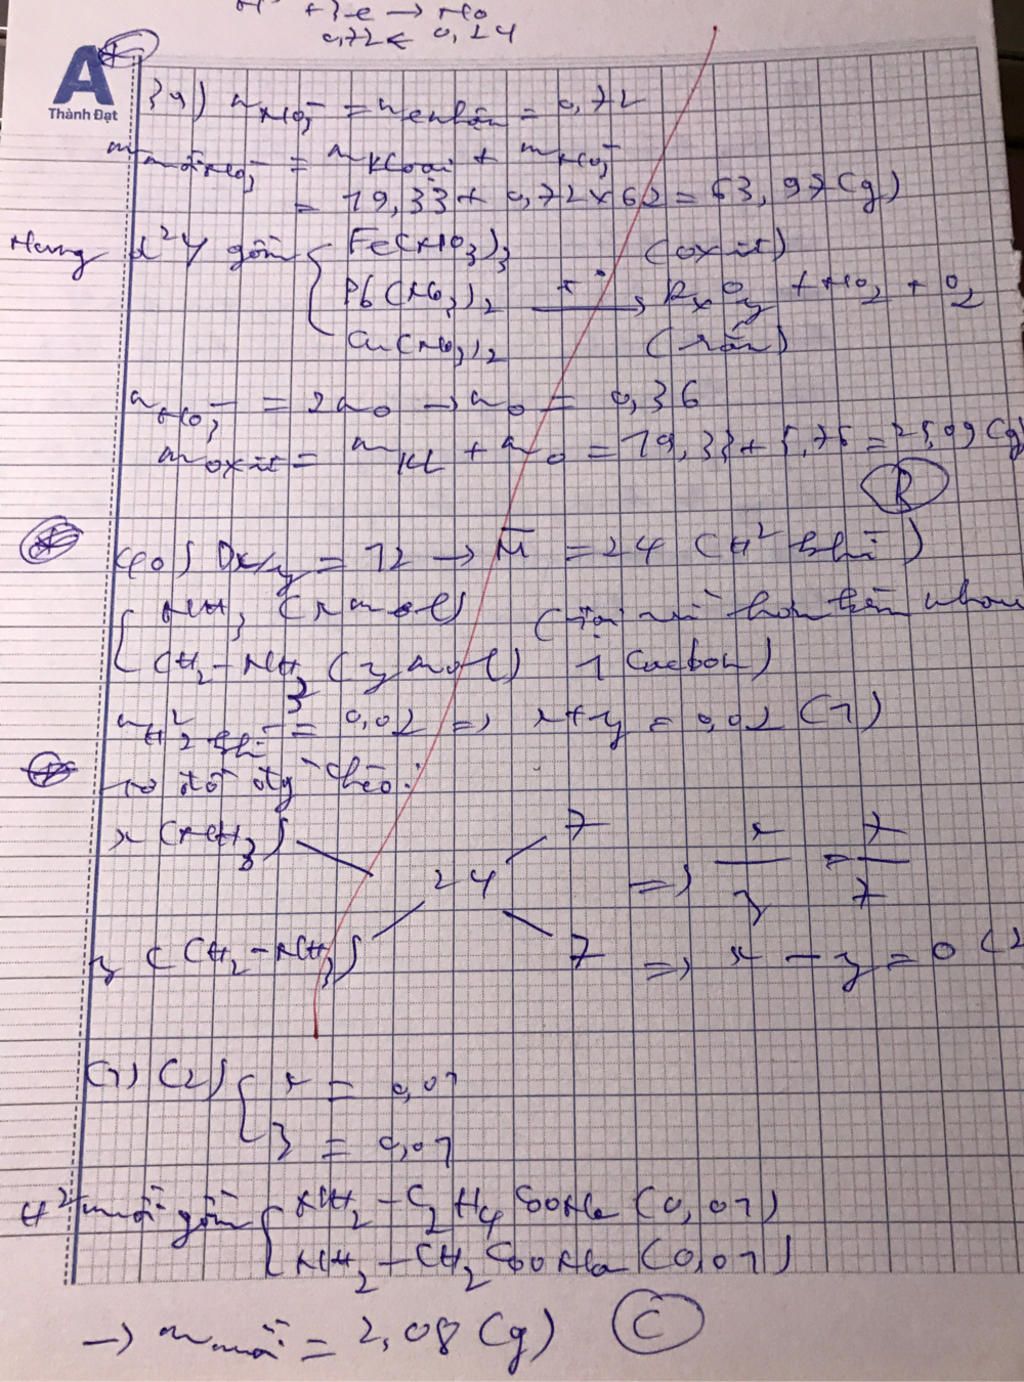 N⁺⁵ + 3e → NO
0,72 ← 0,24
A
Thành Đạt
39) nNO₃⁻ = n e nhận = 0,72
m muối NO₃⁻ = m KLoại + m NO₃⁻
= 19,33 + 0,72 x 62 = 63,97 (g)
Nung d² Y gồm { Fe(NO₃)₃ (oxit)
Pb(NO₃)₂ —t°→ RxOy + NO₂ + O₂
Cu(NO₃)₂ (rắn)
nNO₃⁻ = 2nO → nO = 0,36
m oxit = mKL + mO = 19,33 + 5,76 = 25,09 (g)
B
40) Dx/y = 12 → M̄ = 24 (H² khí)
{ NH₃ (x mol) (Tại vì hỗn
CH₃-NH₂ (y mol) 1 Cacbon)
n H² khí = 0,02 => x + y = 0,02 (1)
Sơ đồ đg chéo:
x (NH₃) 7
24 => x/y = 7/7
y (CH₃-NH₂) 7 => x - y = 0 (2
(1) (2) { x = 0,01
y = 0,01
H² muối gồm { NH₂-C₂H₄COONa (0,01)
NH₂-CH₂COONa (0,01)
→ m muối = 2,08 (g) C